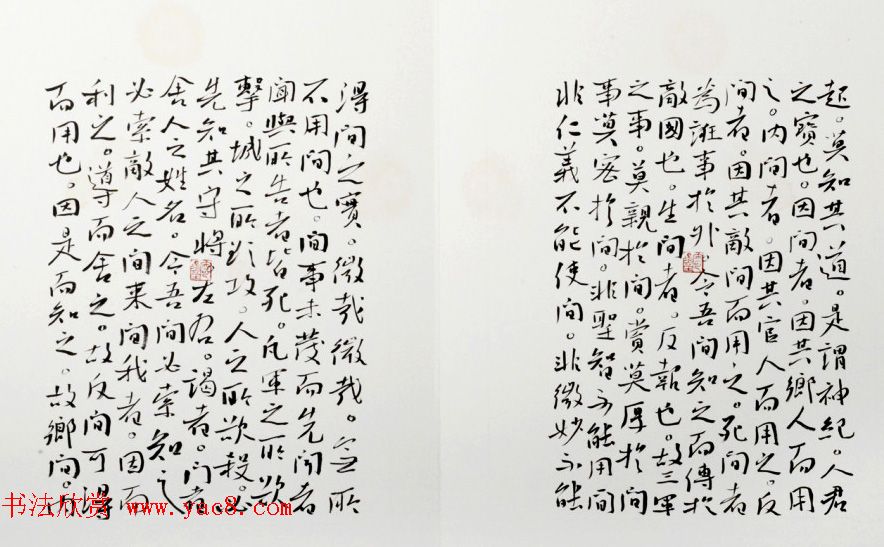 起。莫知其道。是謂神紀。人君
之寶也。因間者。因其鄉人而用
之。内間者。因其官人而用之。反
間者。因其敵間而用之。死間者
為誑事於外。令吾間知之而傳於
敵國也。生間者。反報也。故三軍
之事。莫親於間。賞莫厚於間
事莫密於間。非聖智不能用間
非仁義不能使間。非微妙不能
得間之實。微哉微哉。无所
不用間也。間事未發而先聞者
聞與所告者皆死。凡軍之所欲
擊。城之所欲攻。人之所欲殺。必
先知其守將。左右。謁者。門者
舍人之姓名。令吾間必索知之
必索敵人之間來間我者。因而
利之。導而舍之。故反間可得
而用也。因是而知之。故鄉間。内
书法欣赏 www.yac8.com